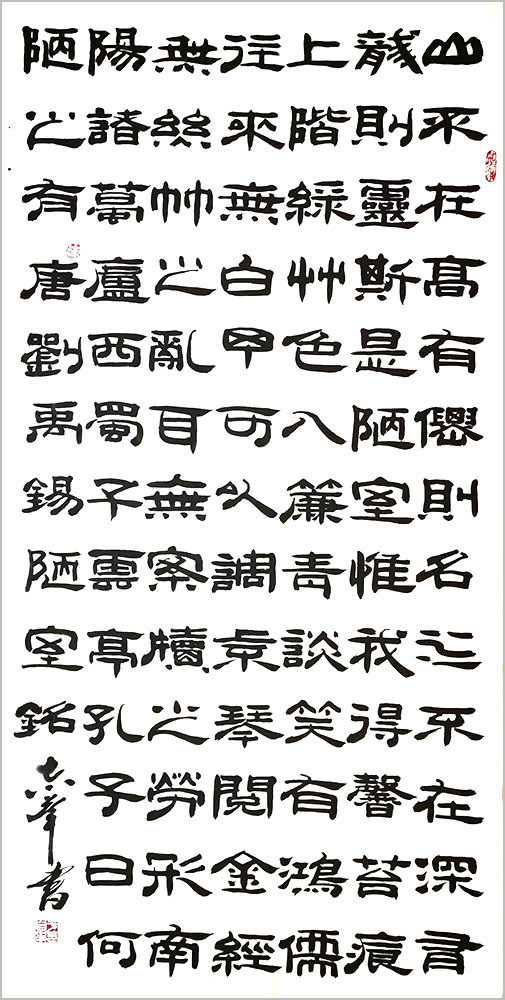 山不在高有僊則名水不在深有
龍則靈斯是陋室惟我得馨苔痕
上階綠艸色入簾青談笑有鴻儒
往來無白甲可以調素琴閱金經
無絲竹之亂耳無案牘之勞形南
陽諸葛廬西蜀子雲亭孔子曰何
陋之有唐劉禹錫陋室銘志峯書